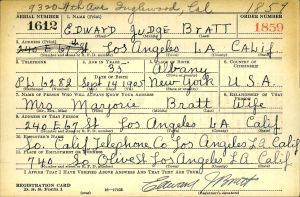 9320 4th Ave Inglewood, Cal 1859
SERIAL NUMBER 1. NAME (Print) ORDER NUMBER
1612 EDWARD JUDGE BRATT 1859
2. ADDRESS (Print)
240 E 67 St Los Angeles L.A. Calif.
3. TELEPHONE 4. AGE IN YEARS 5. PLACE OF BIRTH 6. COUNTRY OF CITIZENSHIP
35 Albany
DATE OF BIRTH
Sept 14 1905 New York U.S.A.
7. NAME OF PERSON WHO WILL ALWAYS KNOW YOUR ADDRESS 8. RELATIONSHIP OF THAT PERSON
Mrs. Marjorie Bratt Wife
9. ADDRESS OF THAT PERSON
240 E 67 St Los Angeles L.A. Calif
10. EMPLOYER'S NAME
So. Calif Telephone Co Los Angeles L.A. Calif
11. PLACE OF EMPLOYMENT OR BUSINESS
740 So Olive St Los Angeles L.A. Calif
I AFFIRM THAT I HAVE VERIFIED ABOVE ANSWERS AND THAT THEY ARE TRUE.
REGISTRATION CARD
D. S. S. Form 1
Edward J Bratt